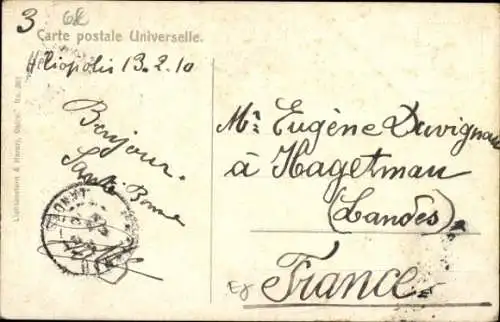 3 62
Carte postale Universelle.
Héliopolis 13.2.10
Bonjour.
Santé Bonne
Mr. Eugène Duvignau
à Hagetmau
(Landes)
France
Lichtenstern & Harari, Cairo. No.